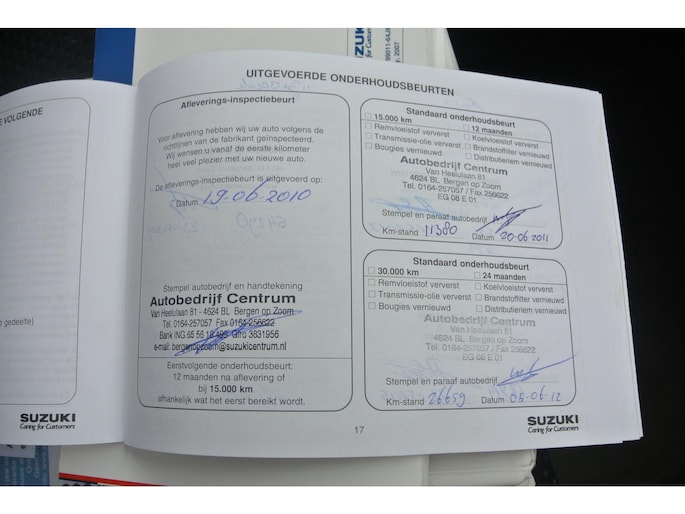 SUZUKI
Caring for Customers
99011-64J
2007
E VOLGENDE
n gedeelte)
SUZUKI
Caring for Customers
UITGEVOERDE ONDERHOUDSBEURTEN
Afleverings-inspectiebeurt
Voor aflevering hebben wij uw auto volgens de
richtlijnen van de fabrikant geïnspecteerd.
Wij wensen u vanaf de eerste kilometer
heel veel plezier met uw nieuwe auto.
De afleverings-inspectiebeurt is uitgevoerd op:
Datum 19-06-2010
Stempel autobedrijf en handtekening
Autobedrijf Centrum
Van Heelulaan 81 - 4624 BL Bergen op Zoom
Tel. 0164-257057 Fax 0164-256622
Bank ING 65 56 18 499 Giro 3831956
e-mail: bergenopzoom@suzukicentrum.nl
Eerstvolgende onderhoudsbeurt:
12 maanden na aflevering of
bij 15.000 km
afhankelijk wat het eerst bereikt wordt.
Standaard onderhoudsbeurt
15.000 km 12 maanden
Remvloeistof ververst Koelvloeistof ververst
Transmissie-olie ververst Brandstoffilter vernieuwd
Bougies vernieuwd Distributieriem vernieuwd
Autobedrijf Centrum
Van Heelulaan 81
4624 BL Bergen op Zoom
Tel. 0164-257057 / Fax 256622
EG 08 E 01
Stempel en paraaf autobedrijf
Km-stand 11380 Datum 20-06-2011
Standaard onderhoudsbeurt
30.000 km 24 maanden
Remvloeistof ververst Koelvloeistof ververst
Transmissie-olie ververst Brandstoffilter vernieuwd
Bougies vernieuwd Distributieriem vernieuwd
Autobedrijf Centrum
Van Heelulaan 81
4624 BL Bergen op Zoom
Tel. 0164-257057 / Fax 256622
EG 08 E 01
Stempel en paraaf autobedrijf
Km-stand 26659 Datum 05-06-12
17
SUZUKI
Caring for Customers